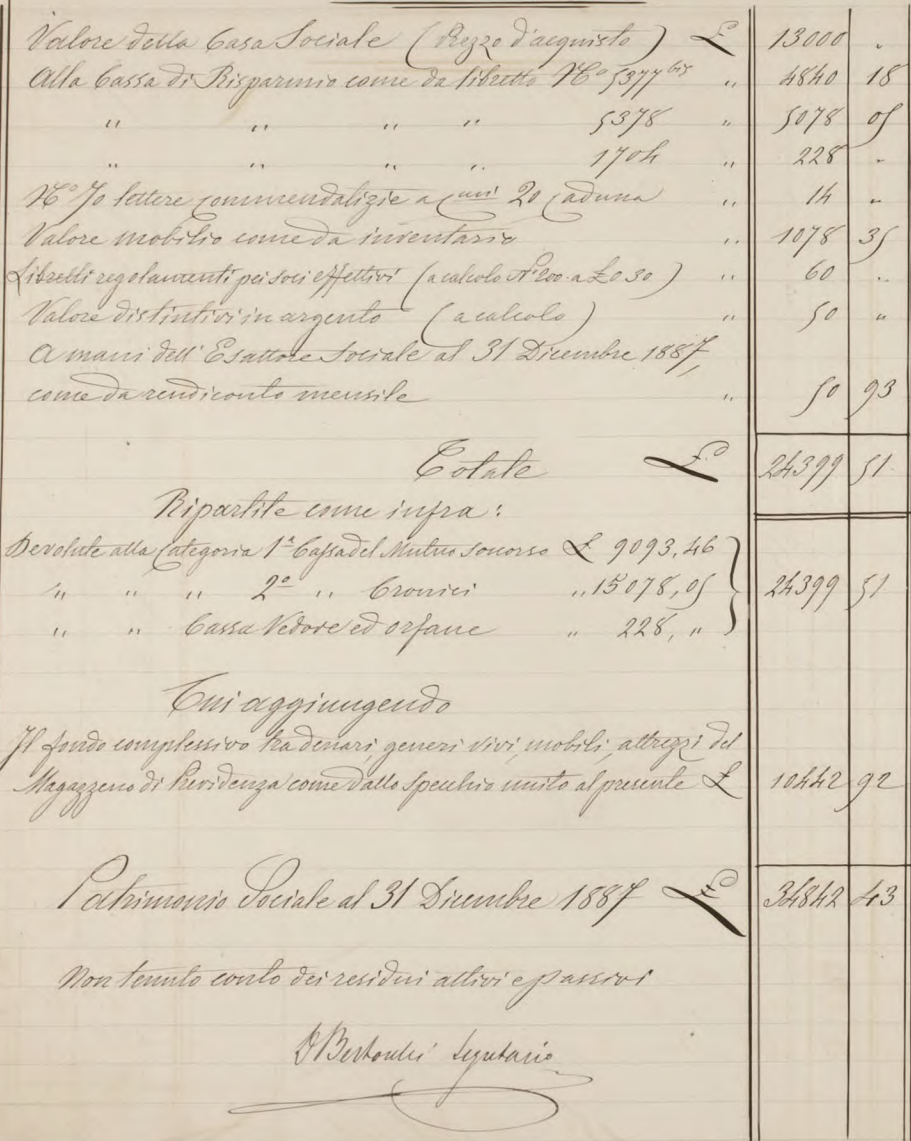 Valore della Casa Sociale (Prezzo d'acquisto) £ 13000 "
Alla Cassa di Risparmio come da libretto N° 5377 bis " 4840 18
" " " " 5378 " 5078 05
" " " " 1704 " 228 "
N° 70 lettere commendalizie a cmi 20 caduna " 14 "
Valore mobilio come da inventario " 1078 35
Libretti regolamenti pei soci effettivi (a calcolo N° 200 a £ 0 30) " 60 "
Valore distintivi in argento (a calcolo) " 50 "
A mani dell'Esattore Sociale al 31 Dicembre 1887,
come da rendiconto mensile " 50 93
Totale £ 24399 51
Ripartite come infra:
Devolute alla Categoria 1ª Cassa del Mutuo soccorso £ 9093,46
" " " 2ª " Cronici " 15078,05 24399 51
" " Cassa Vedove ed orfane " 228, "
Cui aggiungendo
Il fondo complessivo tra denari, generi vivi, mobili, attrezzi del
Magazzeno di Previdenza come dallo specchio unito al presente £ 10442 92
Patrimonio Sociale al 31 Dicembre 1887 £ 34842 43
Non tenuto conto dei residui attivi e passivi
Segretario